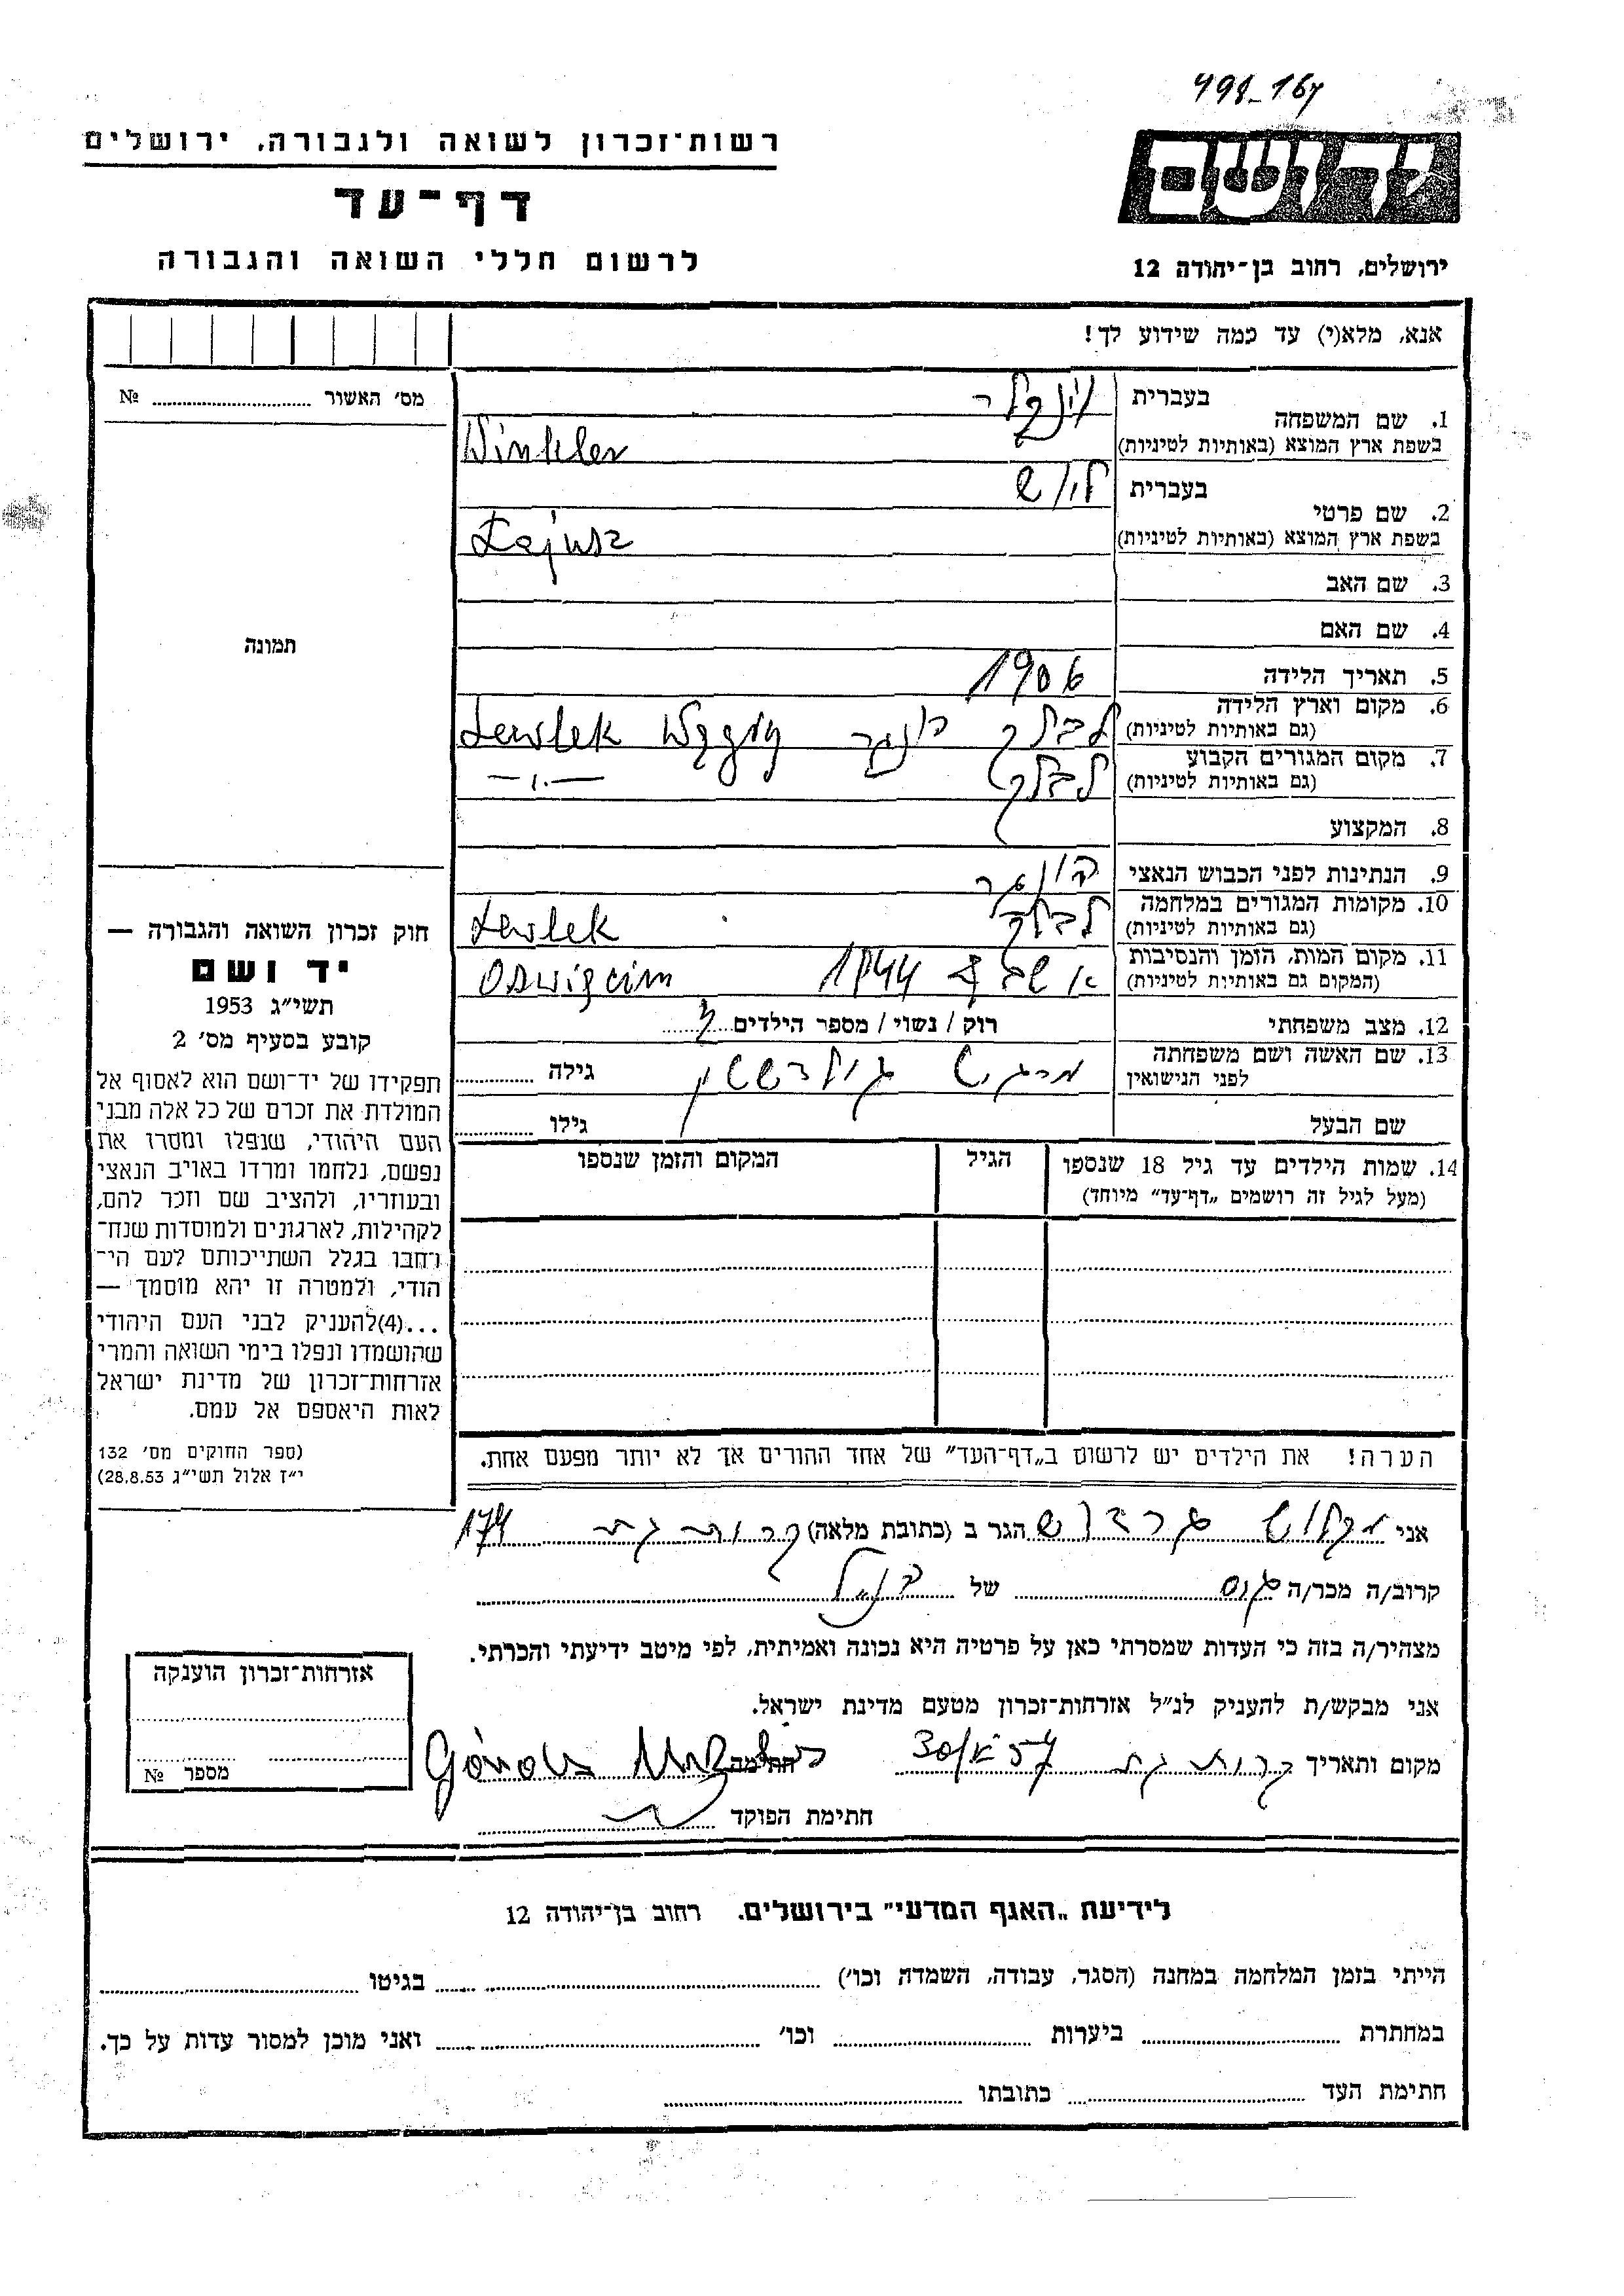 498-164
רשות־זכרון לשואה ולגבורה, ירושלים
דף־עד
לרשום חללי השואה והגבורה
יד ושם
ירושלים, רחוב בן־יהודה 12
אנא, מלא(י) עד כמה שידוע לך!
מס׳ האשור № 
1. שם המשפחה בעברית וינקלר
בשפת ארץ המוצא (באותיות לטיניות) Winkler
2. שם פרטי בעברית לויוש
בשפת ארץ המוצא (באותיות לטיניות) Lajusz
3. שם האב
4. שם האם
תמונה
5. תאריך הלידה 1906
6. מקום וארץ הלידה (גם באותיות לטיניות) הונגר Lewlek Węgry
7. מקום המגורים הקבוע (גם באותיות לטיניות) לבלק —״—
8. המקצוע
9. הנתינות לפני הכבוש הנאצי הונגר
10. מקומות המגורים במלחמה (גם באותיות לטיניות) לבלק Lewlek
11. מקום המות, הזמן והנסיבות (המקום גם באותיות לטיניות) 1944 Oswięcim
12. מצב משפחתי רוק / נשוי / מספר הילדים
13. שם האשה ושם משפחתה לפני הנישואין מרגיט גולדשטין גילה
שם הבעל גילו
14. שמות הילדים עד גיל 18 שנספו (מעל לגיל זה רושמים „דף־עד״ מיוחד) הגיל המקום והזמן שנספו
חוק זכרון השואה והגבורה —
יד ושם
תשי״ג 1953
קובע בסעיף מס׳ 2
תפקידו של יד־ושם הוא לאסוף אל
המולדת את זכרם של כל אלה מבני
העם היהודי, שנפלו ומסרו את
נפשם, נלחמו ומרדו באויב הנאצי
ובעוזריו, ולהציב שם וזכר להם,
לקהילות, לארגונים ולמוסדות שנח־
רחבו בגלל השתייכותם לעם הי־
הודי, ולמטרה זו יהא מוסמך —
...(4)להעניק לבני העם היהודי
שהושמדו ונפלו בימי השואה והמרי
אזרחות־זכרון של מדינת ישראל
לאות היאספם אל עמם.
(ספר החוקים מס׳ 132
י״ז אלול תשי״ג 28.8.53)
הערה! את הילדים יש לרשום ב„דף־העד״ של אחד ההורים אך לא יותר מפעם אחת.
אני מקלוש גרדוש הגר ב (כתובת מלאה) קרית גת 174
קרוב/ה מכר/ה גוס של הנ״ל
מצהיר/ה בזה כי העדות שמסרתי כאן על פרטיה היא נכונה ואמיתית, לפי מיטב ידיעתי והכרתי.
אני מבקש/ת להעניק לנ״ל אזרחות־זכרון מטעם מדינת ישראל.
מקום ותאריך קרית גת חתימה
חתימת הפוקד
אזרחות־זכרון הוענקה
מספר №
לידיעת „האגף המדעי״ בירושלים. רחוב בן־יהודה 12
הייתי בזמן המלחמה במחנה (הסגר, עבודה, השמדה וכו׳) בגיטו
במחתרת ביערות וכו׳ ואני מוכן למסור עדות על כך.
חתימת העד כתובתו